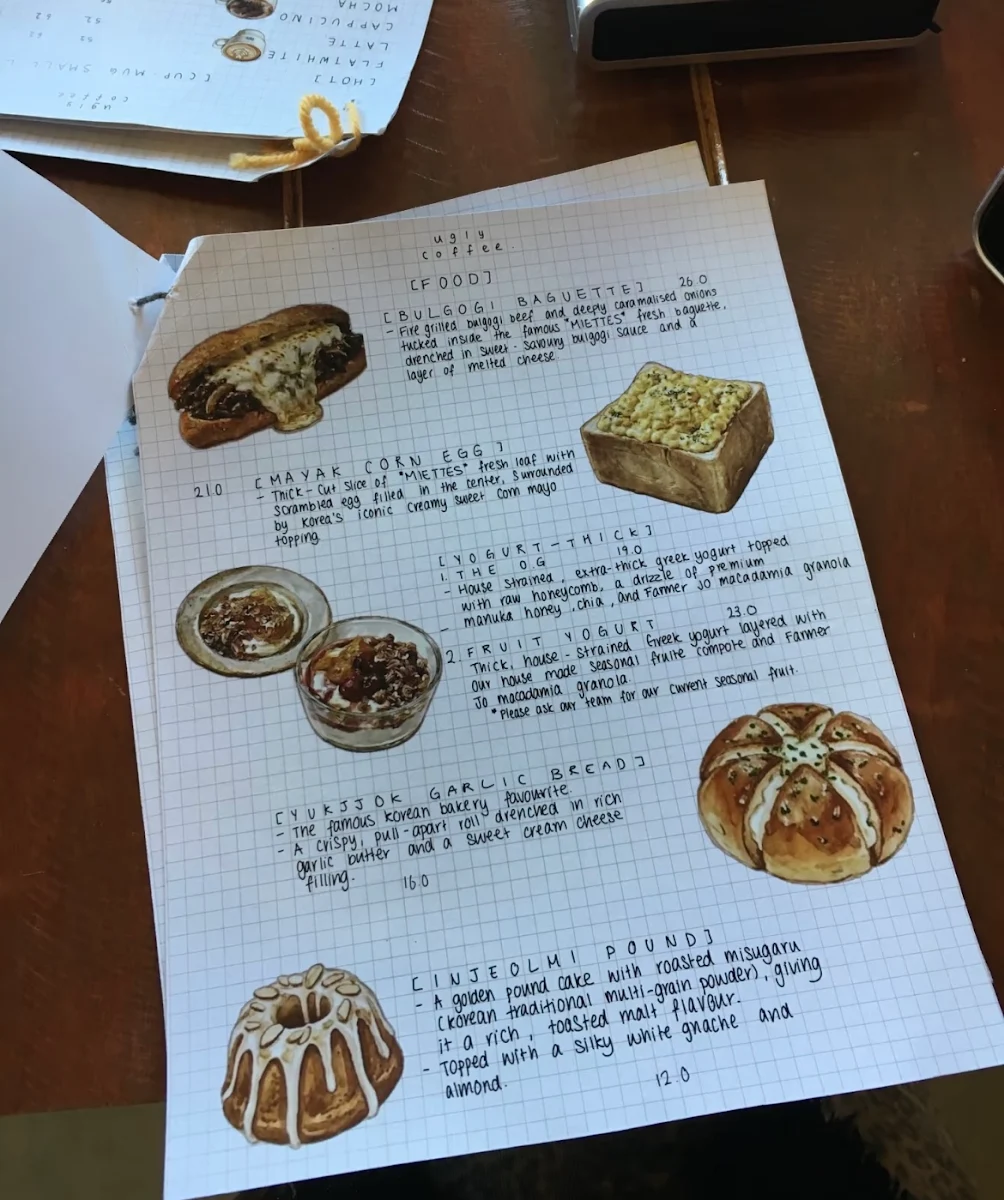 MOCHA
CAPPUCINO 52 62
LATTE 52 62
FLATWHITE
[HOT] [CUP·MUG SMALL
ugly
coffee
ugly
coffee.
[FOOD]
[BULGOGI BAGUETTE] 26.0
- Fire grilled bulgogi beef and deeply caramalised onions
tucked inside the famous "MIETTES" fresh baguette,
drenched in sweet-savoury bulgogi sauce and a
layer of melted cheese
21.0 [MAYAK CORN EGG]
- Thick-cut slice of "MIETTES" fresh loaf with
scrambled egg filled in the center, surrounded
by Korea's iconic creamy sweet corn mayo
topping
[YOGURT-THICK]
1. THE OG 19.0
- House strained, extra-thick greek yogurt topped
with raw honeycomb, a drizzle of premium
- manuka honey, chia, and Farmer Jo macadamia granola
2. FRUIT YOGURT 23.0
Thick, house-strained Greek yogurt layered with
our house made seasonal fruite compote and Farmer
Jo macadamia granola.
*Please ask our team for our current seasonal fruit.
[YUKJJOK GARLIC BREAD]
- The famous korean bakery favourite.
- A crispy, pull-apart roll drenched in rich
garlic butter and a sweet cream cheese
filling. 16.0
[INJEOLMI POUND]
- A golden pound cake with roasted misugaru
(korean traditional multi-grain powder), giving
it a rich, toasted malt flavour.
- Topped with a silky white gnache and
almond. 12.0